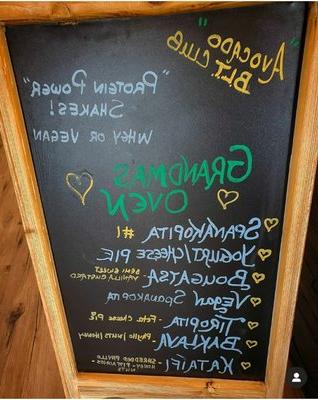 "AVOCADO"
BLT CLUB
"PROTEIN POWER"
SHAKES!
WHEY OR VEGAN
GRANDMAS
OVEN
SPANAKOPITA #1
YOGURT/CHEESE PIE
BOUGATSA DEMI SWEET
VANILLA CUSTARD
VEGAN SPANAKOPITA
TIROPITA - Feta Cheese Pie
BAKLAVA Phyllo/Nuts/Honey
KATAIFI - SHREDDED PHYLLO -
NUTS